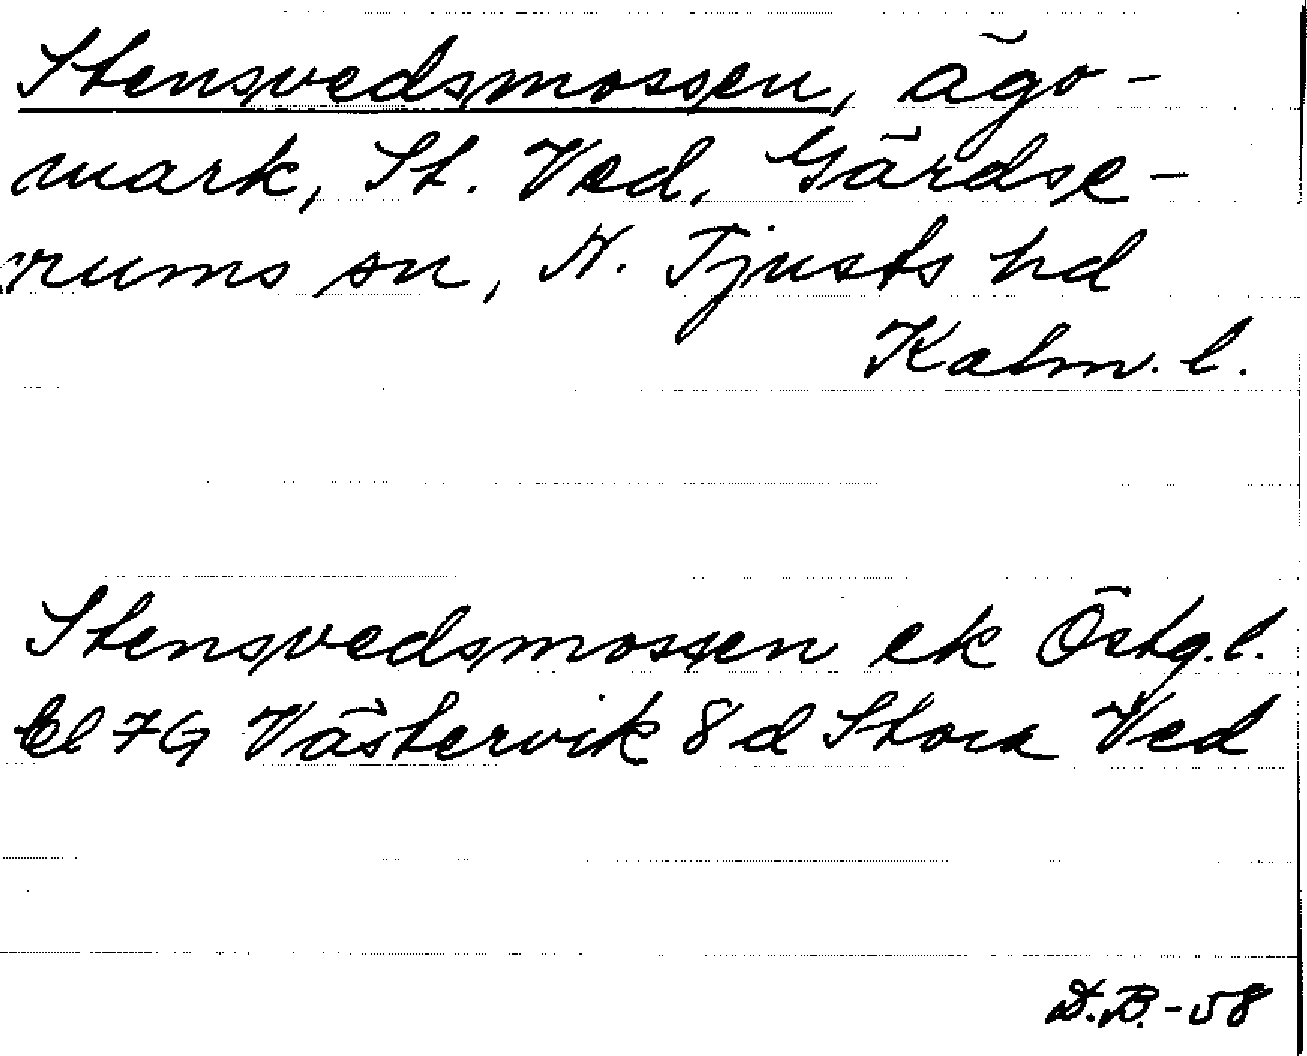 Stensvedsmossen, ägo-
mark, St. Ved, Gärdse-
rums sn, N. Tjusts hd
Kalm. l.
Stensvedsmossen ek Östg. l.
bl 7G Västervik 8 d Stora Ved
D.B.-58